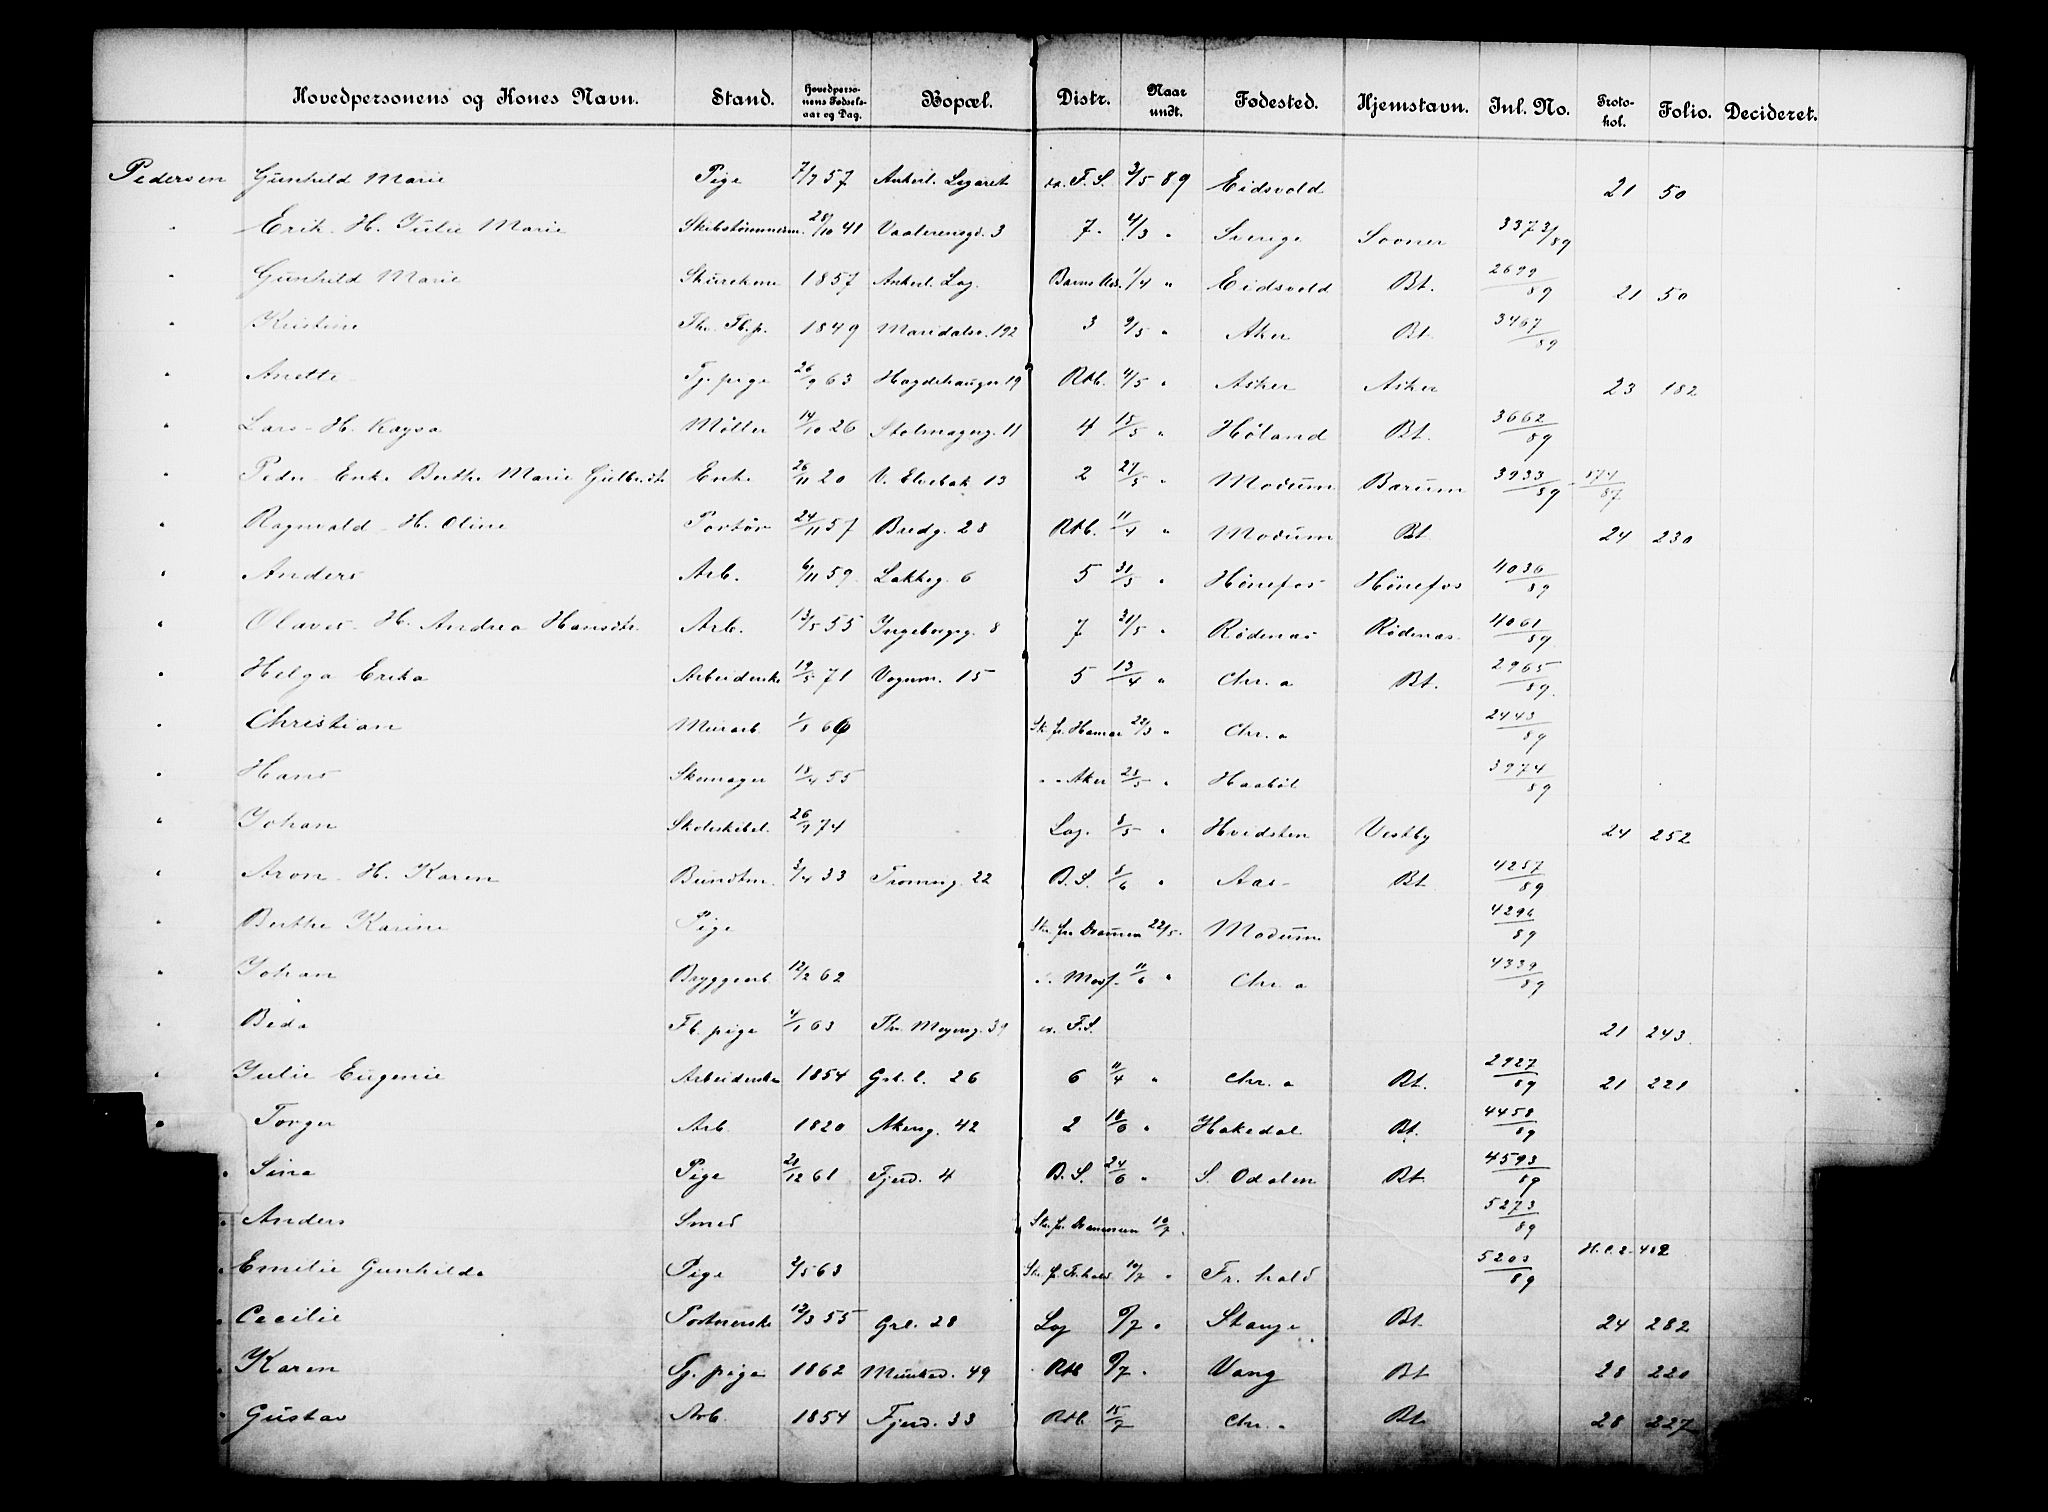 Hovedpersonens og Kones Navn. Stand. Hovedperso-nens Fødsels-aar og Dag. Bopæl. Distr. Naar undt. Fødested. Hjemstavn. Inl. No. Proto-kol. Folio. Decideret.
Pedersen Gunhild Marie Pige 7/7 57 Ankerl. Lazaret F. S. 3/5 89 Eidsvold 21 50
" Erik. H. Julie Marie Skibstømmerm. 28/10 41 Vaalerensgd. 3 7. 4/3 " Sverige 3373/89
" Gunhild Marie Skurekone 1857 Ankerl. Laz. 1/4 " Eidsvold Bt. 2699/89 21 50
" Kristine 1849 Maridalsv. 192 3 9/5 " Aker Bt. 3467/89
" Anette Tj. pige 26/9 63 Hægdehaugsv 19 Rtb. 4/5 " Asker Asker 23 182
" Lars - H. Kaysa Møller 14/10 26 Stolmagerg. 11 4 15/5 " Høland Bt. 3662/89
" Peder - Enke Berthe Marie Gulbrdtr Enke 26/11 20 V. Elvebak 13 2 27/5 " Modum Barum 3933/89 - 874/87
" Ragnvald - H. Oline Portør 24/11 57 Bredg. 28 Rtb. 11/4 " Modum Bt. 24 230
" Anders Arb. 6/11 59. Lakkeg. 6 5 31/5 " Hønefos Hønefos 4036/89
" Olaves - H. Andrea Hansdtr. Arb. 13/5 55 Ingeborgg. 8 7 31/5 " Rødenæs Rødenæs 4061/89
" Helga Erika Arbeiderske 19/5 71 Vognm. 15 5 13/4 " Chr. a Bt. 2965/89.
" Christian Murarb. 1/8 66 St. fr. Hamar 22/3 " Chr. a 2443/89
" Hans Skomager 18/4 55 " " Aker 28/5 " Haabøl 3974/89
" Johan Skoleskibel. 26/9 74 Laz. 8/5 " Hvidsten Vestby 24 252
" Aron - H. Karen Bundtm. 3/4 33 Tromsøg. 22 B. S. 8/6 " Aas Bt. 4257/89
" Berthe Karine Pige St. fr. Drammen 22/5. Modum 4296/89
" Johan Bryggearb. 12/2 62 " Moss. 11/6 " Chr. a 4339/89
" Beda Fb. pige 4/1 63 Thv. Meyersg. 39 F.S. 21 243
" Julie Eugenie Arbeiderske 1854 Grl. l. 26 6 11/4 " Chr. a Bt. 2927/89 21 221
" Torger Arb. 1820 Akersg. 42 2 18/6 " Hakedal Bt. 4458/89
" Sina Pige 28/12 61 Fjerd. 4 B. S. 24/6 " S. Odalen Bt. 4593/89
" Anders Smed St. fr. Drammen 10/7 " 5273/89
" Emilie Gunhilda Pige 2/5 63 St. f. Fr.hald 10/7 " Fr. hald 5203/89 H. C. 2 - 482
" Cecilie Portnerske 12/3 55 Grl. 28 Laz 9/7 " Stange Bt. 24 282
" Karen Tj. pige 1862 Munked. 49 Rtb 9/7 " Vang Bt 28 220
" Gustav Arb. 1854 Fjerd. 33 Rtb. 15/7 Chr. a Bt 28 227